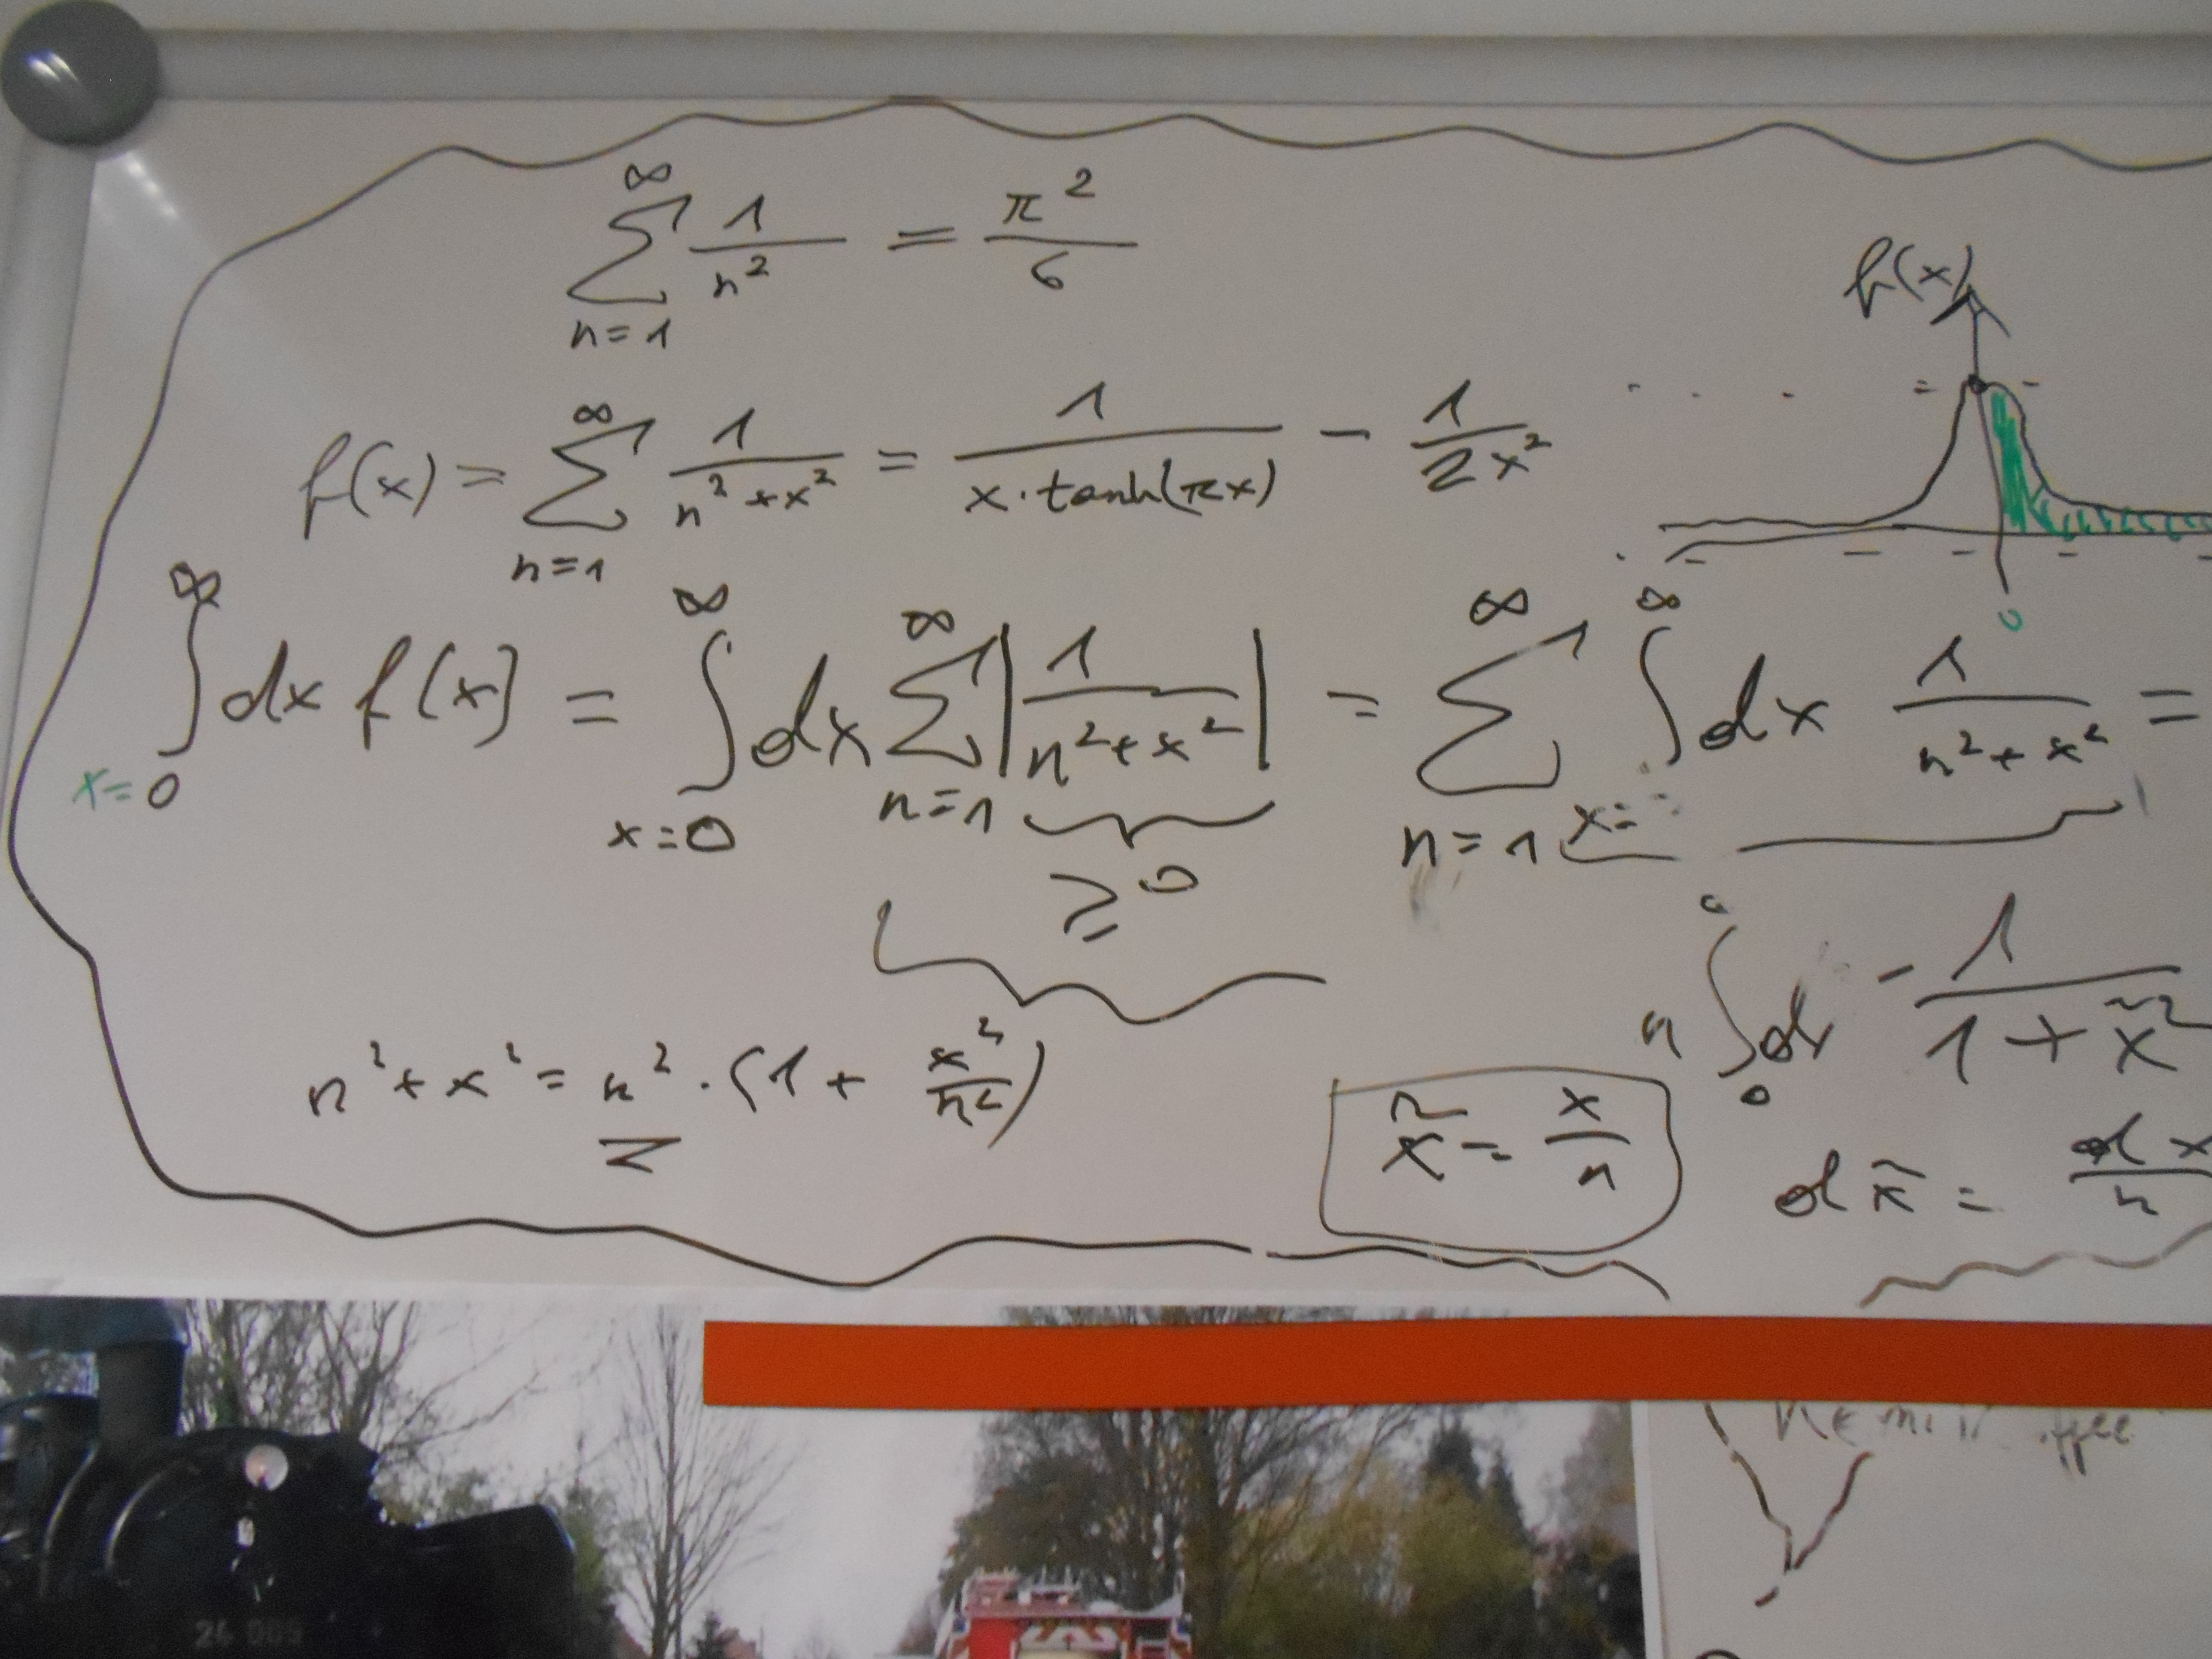 ∞ ∑ n=1 1/n² = π²/6
f(x)
f(x) = ∞ ∑ n=1 1/(n²+x²) = 1/(x·tanh(πx)) − 1/(2x²)
0
∞ ∫ x=0 dx f(x) = ∞ ∫ x=0 dx ∞ ∑ n=1 |1/(n²+x²)| = ∞ ∑ n=1 ∞ ∫ x= dx 1/(n²+x²) =
≥0
n ∫ 0 d 1/(1+x̃²)
n²+x² = n²·(1+x²/n²)
x̃ = x/n
dx̃ = dx/n
24 009